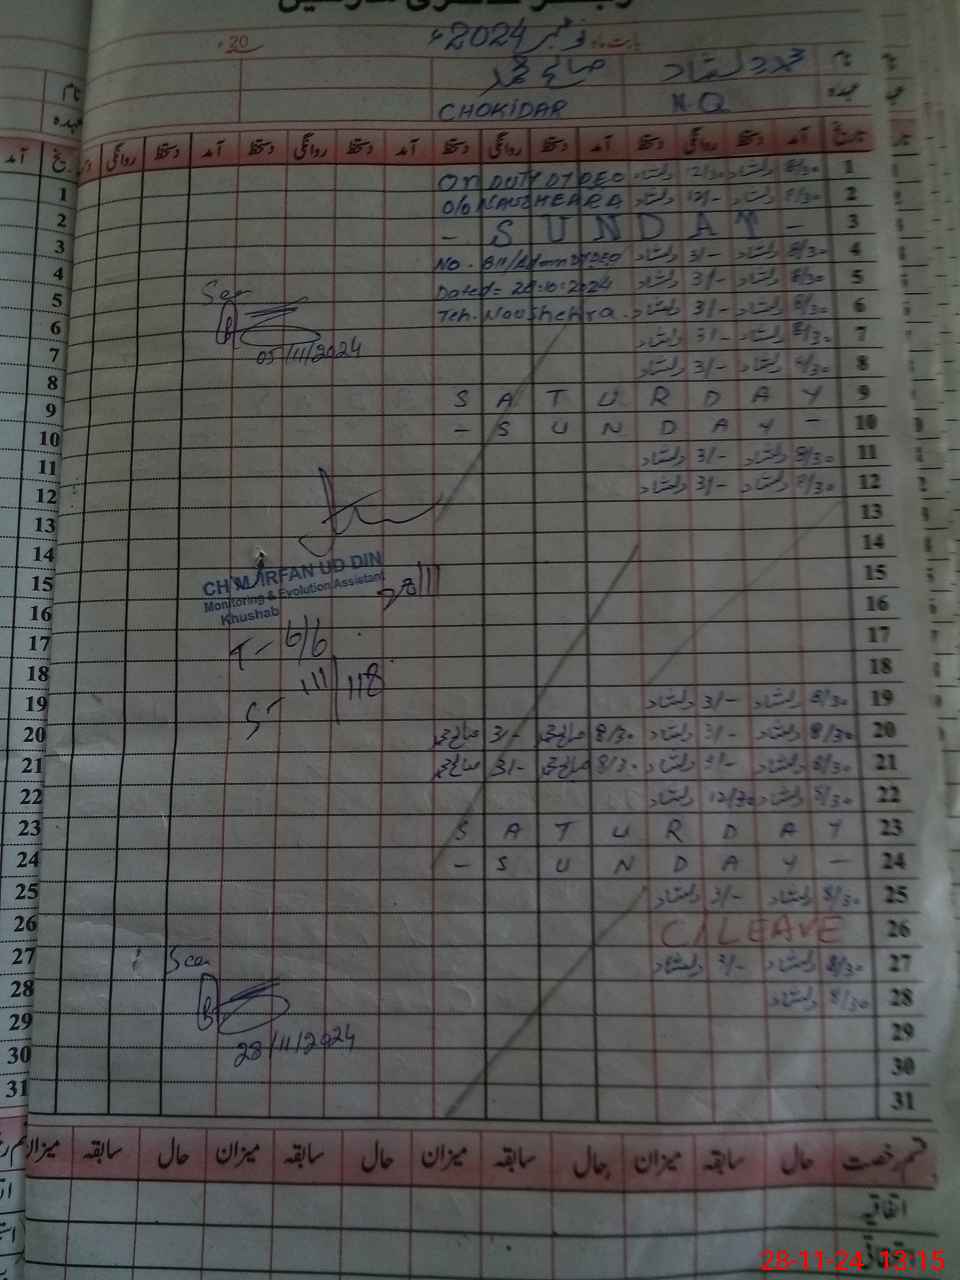 بابت ماہ نومبر 2024ء 20
نام محمد دلشاد صالح محمد
عہدہ N.Q CHOKIDAR
تاریخ آمد دستخط روانگی دستخط آمد دستخط روانگی دستخط آمد دستخط روانگی دستخط آمد دستخط روانگی
1 8/30 دلشاد 12/30 دلشاد ON DUTY DY DEO
2 8/30 دلشاد 12/- دلشاد O/o NAUSHEARA
3 - SUNDAY -
4 8/30 دلشاد 3/- دلشاد No. DY DEO
5 8/30 دلشاد 3/- دلشاد Dated= 28:10:2024
6 8/30 دلشاد 3/- دلشاد Teh. Noushehra.
7 8/30 دلشاد 3/- دلشاد
8 8/30 دلشاد 3/- دلشاد
9 SATURDAY
10 - SUNDAY -
11 8/30 دلشاد 3/- دلشاد
12 8/30 دلشاد 3/- دلشاد
13
14
15
16
17
18
19 8/30 دلشاد 3/- دلشاد
20 8/30 دلشاد 3/- دلشاد 8/30 صالح محمد 3/- صالح محمد
21 8/30 دلشاد 3/- دلشاد 8/30 صالح محمد 3/- صالح محمد
22 8/30 دلشاد 12/30 دلشاد
23 SATURDAY
24 - SUNDAY -
25 8/30 دلشاد 3/- دلشاد
26 C/LEAVE
27 8/30 دلشاد 3/- دلشاد
28 8/30 دلشاد
29
30
31
05/11/2024
CH M IRFAN UD DIN
Monitoring & Evolution Assistant
Khushab
T- 6/6
ST 111/118
28/11/2024
قسم رخصت حال سابقہ میزان حال سابقہ میزان حال سابقہ میزان حال سابقہ میزان
اتفاقیہ
28-11-24 13:15